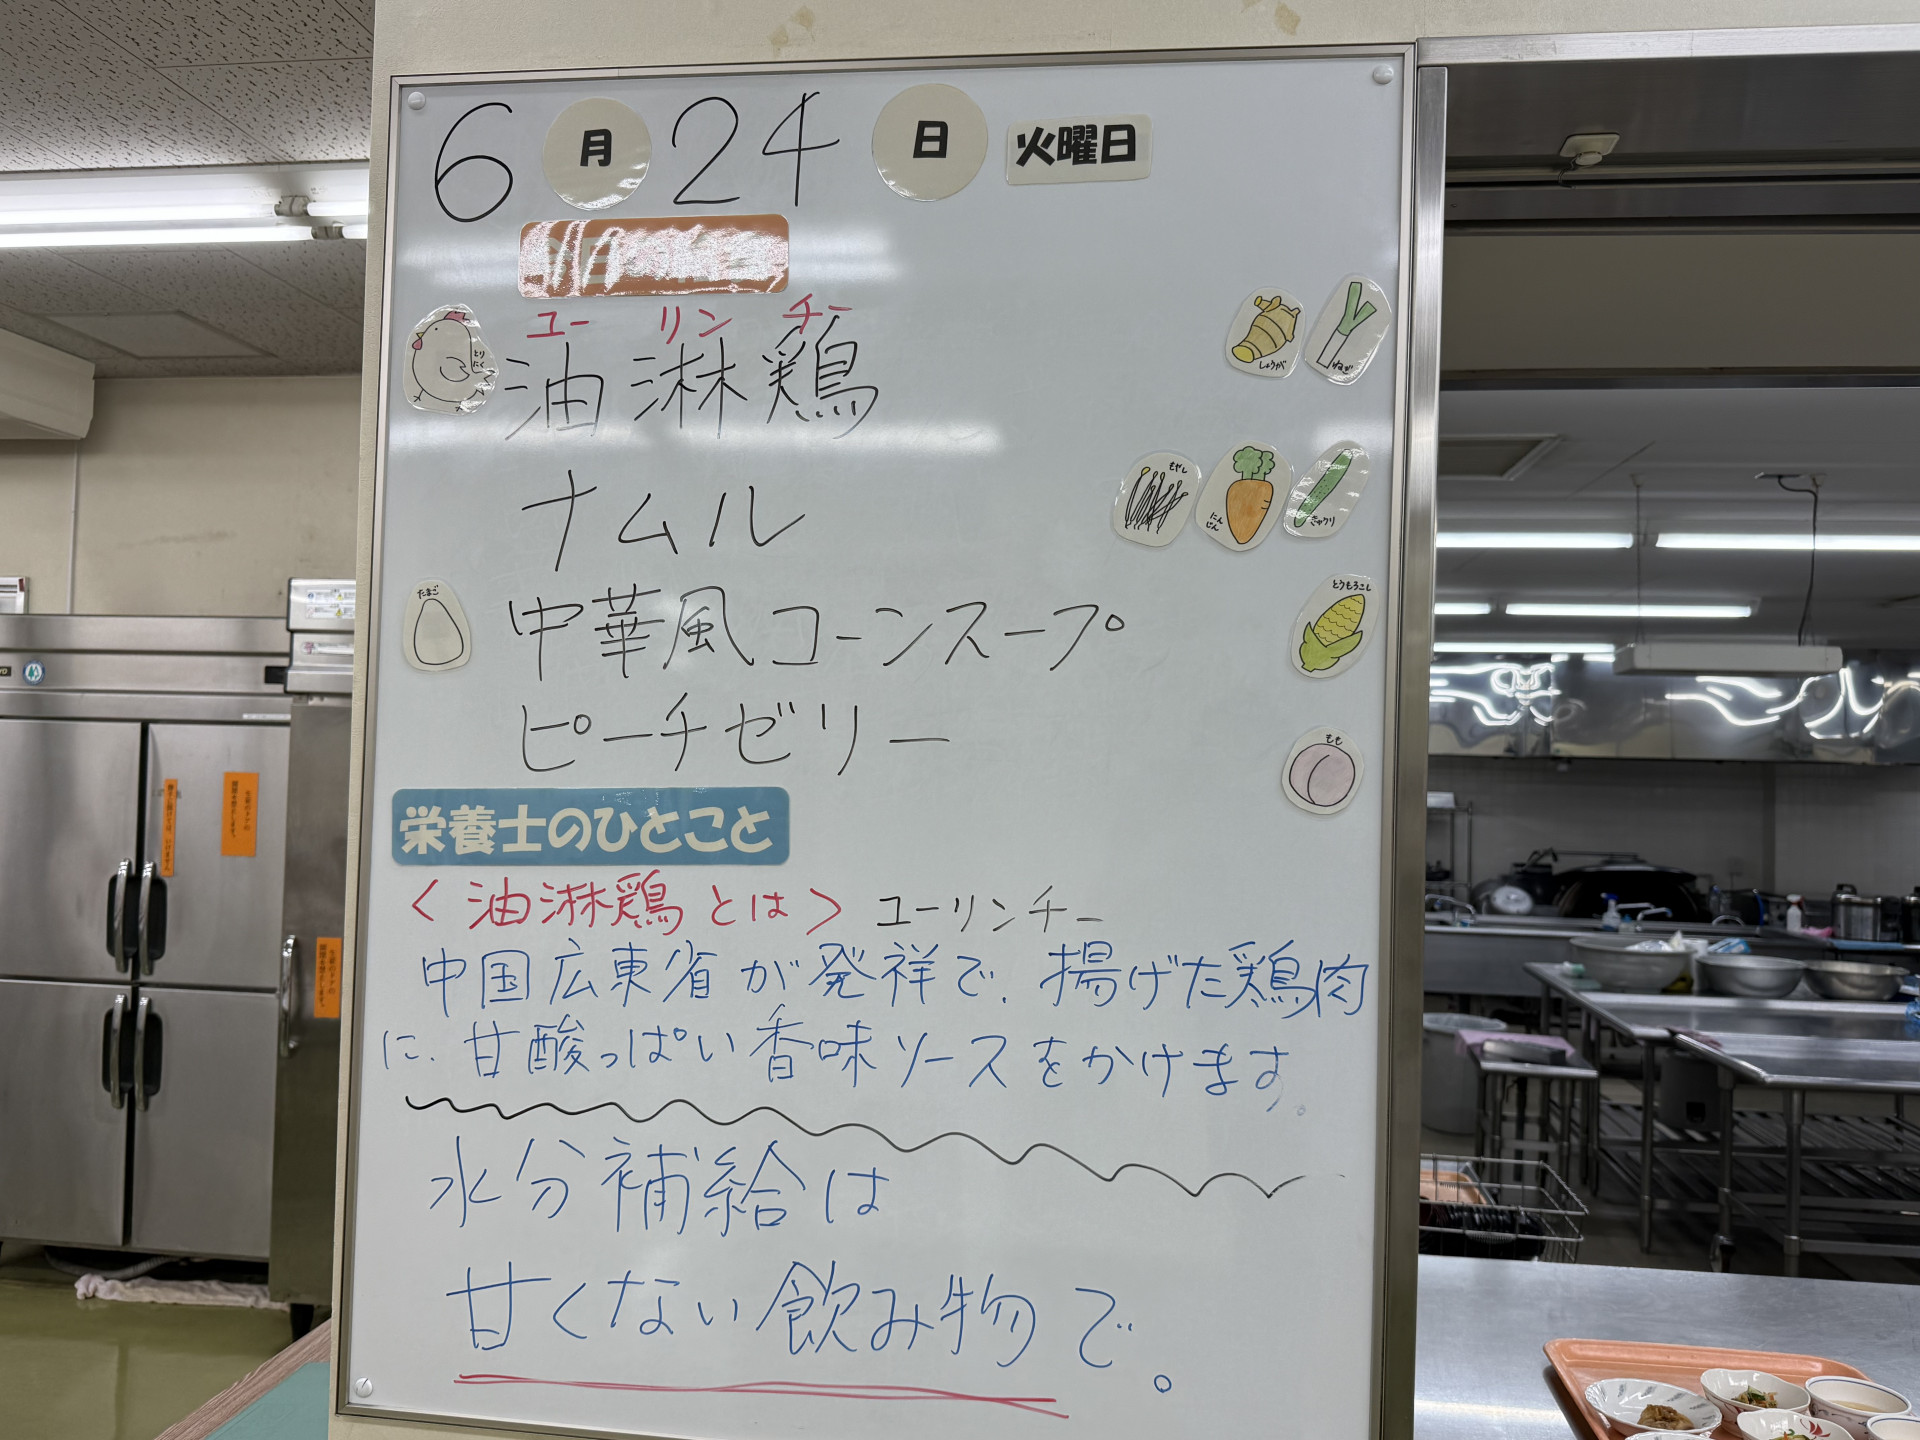 6月24日 火曜日
ユーリンチー
油淋鶏
とり
にく
しょうが
ねぎ
ナムル
もやし
にん
じん
きゅうり
たまご
中華風コーンスープ
とうもろこし
ピーチゼリー
もも
栄養士のひとこと
〈油淋鶏とは〉ユーリンチー
中国広東省が発祥で、揚げた鶏肉
に、甘酸っぱい香味ソースをかけます。
水分補給は
甘くない飲み物で。